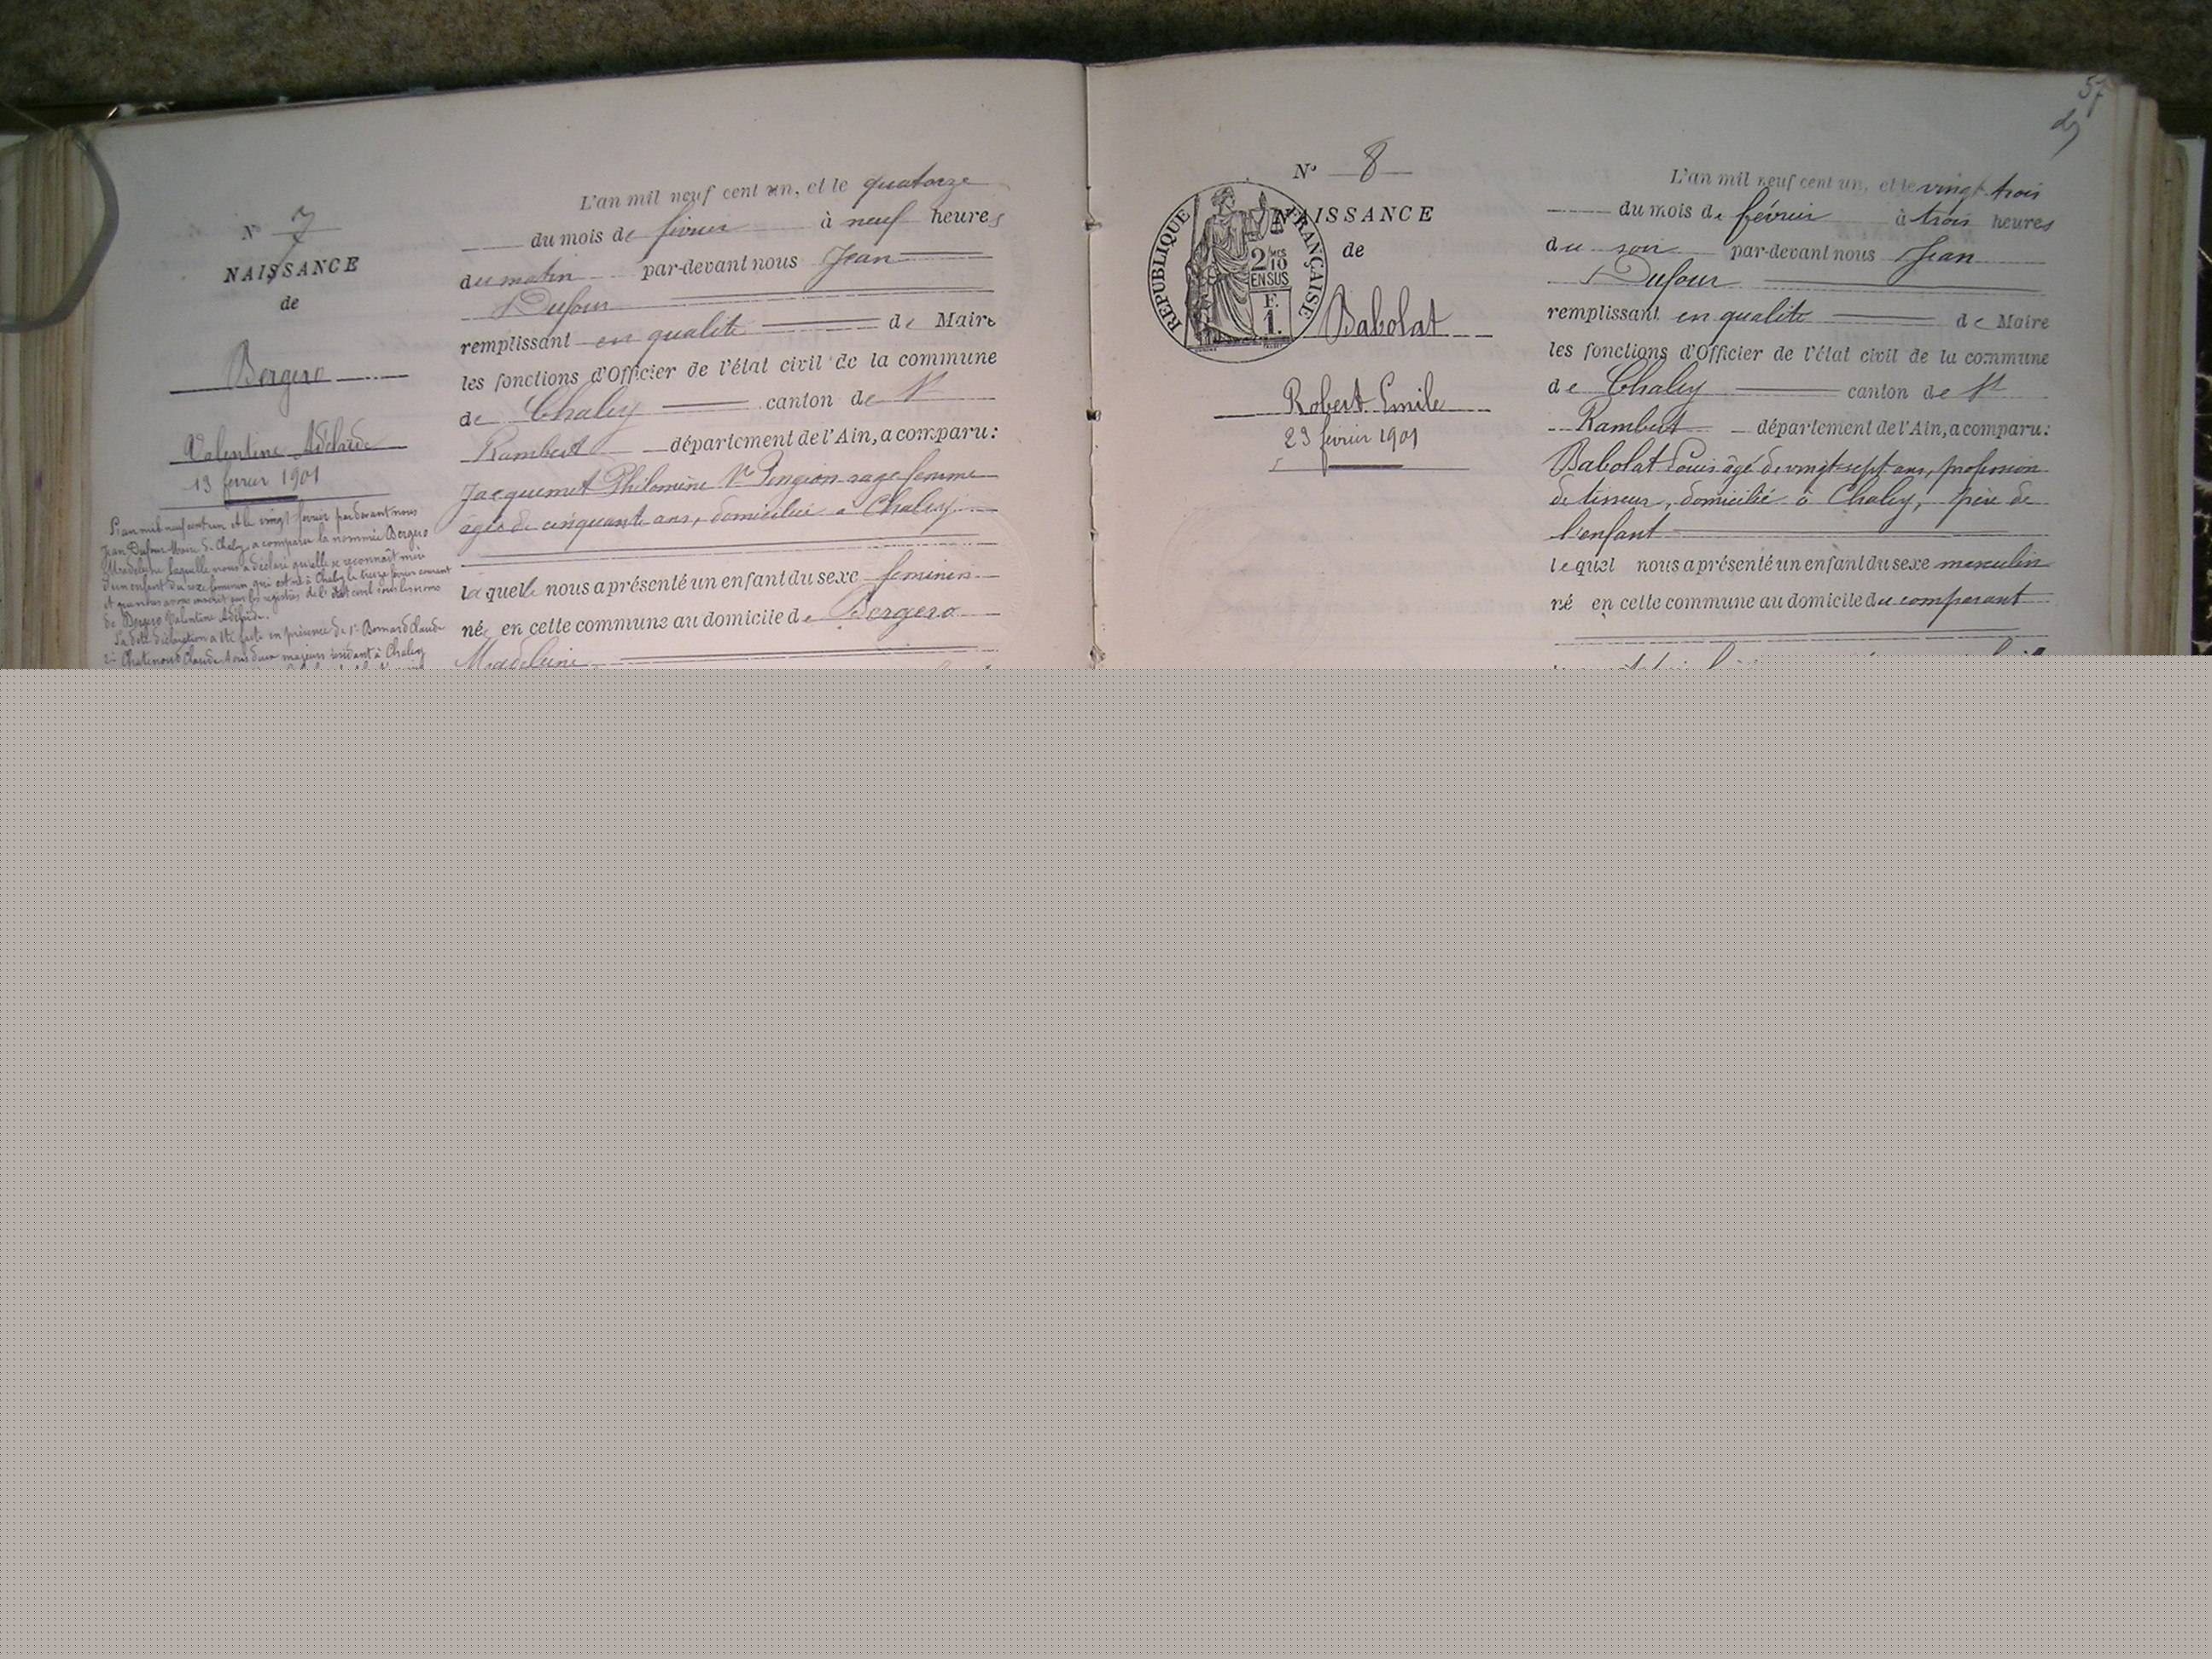 N° 7
NAISSANCE
de
Bergero
Valentine Adelaïde
13 fevrier 1901
L'an mil neuf cent un et le vingt fevrier par devant nous
Jean Dufour Maire de Chaley, a comparu la nommée Bergero
Madeleine laquelle nous a déclaré qu'elle se reconnaît mère
d'un enfant du sexe feminin qui est né à Chaley le treize fevrier courant
et que nous avons inscrit sur les registres de l'état civil sous les noms
de Bergero Valentine Adelaïde.
La dite déclaration a été faite en présence de 1° Bornard Claude
2° Claude tous deux majeurs à Chaley
L'an mil neuf cent un, et le quatorze
du mois de fevrier à neuf heures
du matin par-devant nous Jean
Dufour
remplissant en qualité de Maire
les fonctions d'Officier de l'état civil de la commune
de Chaley canton de St
Rambert département de l'Ain, a comparu:
Jacquemet Philomène Ve Pingeon sage femme
agée de cinquante ans, domiciliée à Chaley
laquelle nous a présenté un enfant du sexe feminin
née en cette commune au domicile de Bergero
Madeleine
57
N° 8
NAISSANCE
de
REPUBLIQUE FRANÇAISE
2/10 MES
EN SUS
F.
1.
Babolat
Robert Emile
23 fevrier 1901
L'an mil neuf cent un, et le vingt-trois
du mois de février à trois heures
du soir par-devant nous Jean
Dufour
remplissant en qualité de Maire
les fonctions d'Officier de l'état civil de la commune
de Chaley canton de St
Rambert département de l'Ain, a comparu:
Babolat Louis âgé de vingt-sept ans, profession
de tisseur, domicilié à Chaley, père de
l'enfant
lequel nous a présenté un enfant du sexe masculin
né en cette commune au domicile du comparant